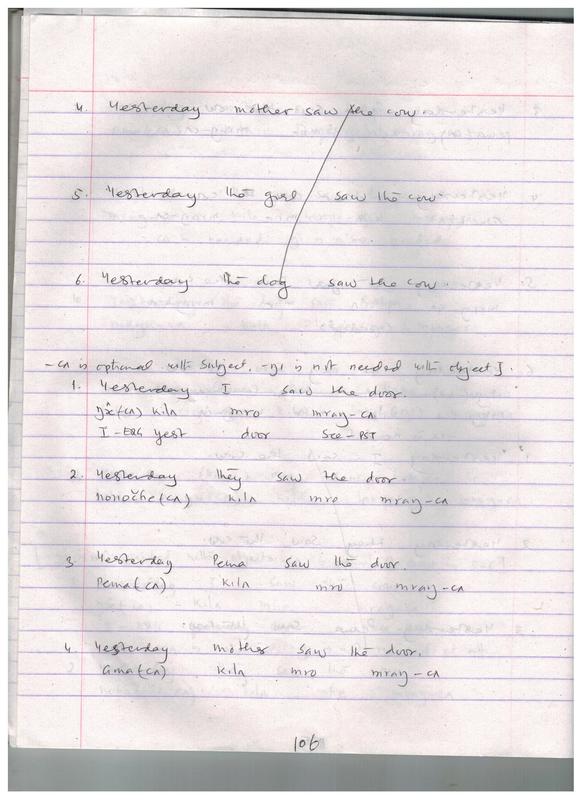 4. Yesterday mother saw the cow
5. Yesterday the girl saw the cow
6. Yesterday the dog saw the cow.
-cʌ is optional with subject. -ʝi is not needed with object].
1. Yesterday I saw the door.
(cʌ) kilʌ mro mraŋ-cʌ
I-ERG yest door see-PST
2. Yesterday they saw the door
(cʌ) kilʌ mro mraŋ-cʌ
3. Yesterday Pema saw the door.
Pema(cʌ) kilʌ mro mraŋ-cʌ
4. Yesterday mother saw the door.
ama(cʌ) kilʌ mro mraŋ-cʌ
106